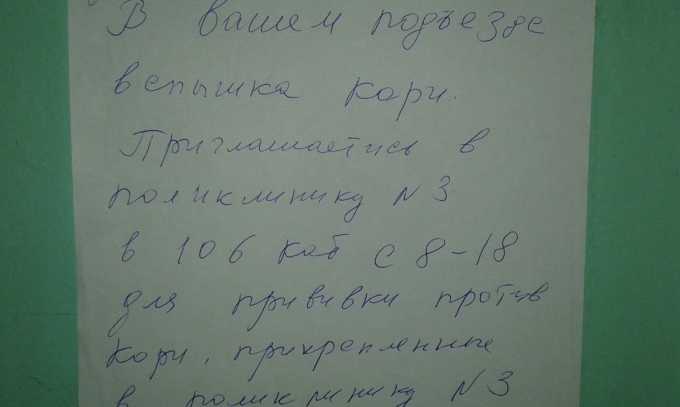 В вашем подъезде
вспышка кори.
Приглашаетись в
поликлинику N3
в 106 каб с 8-18
для прививки против
кори, прикрепленные
в поликлинику N3